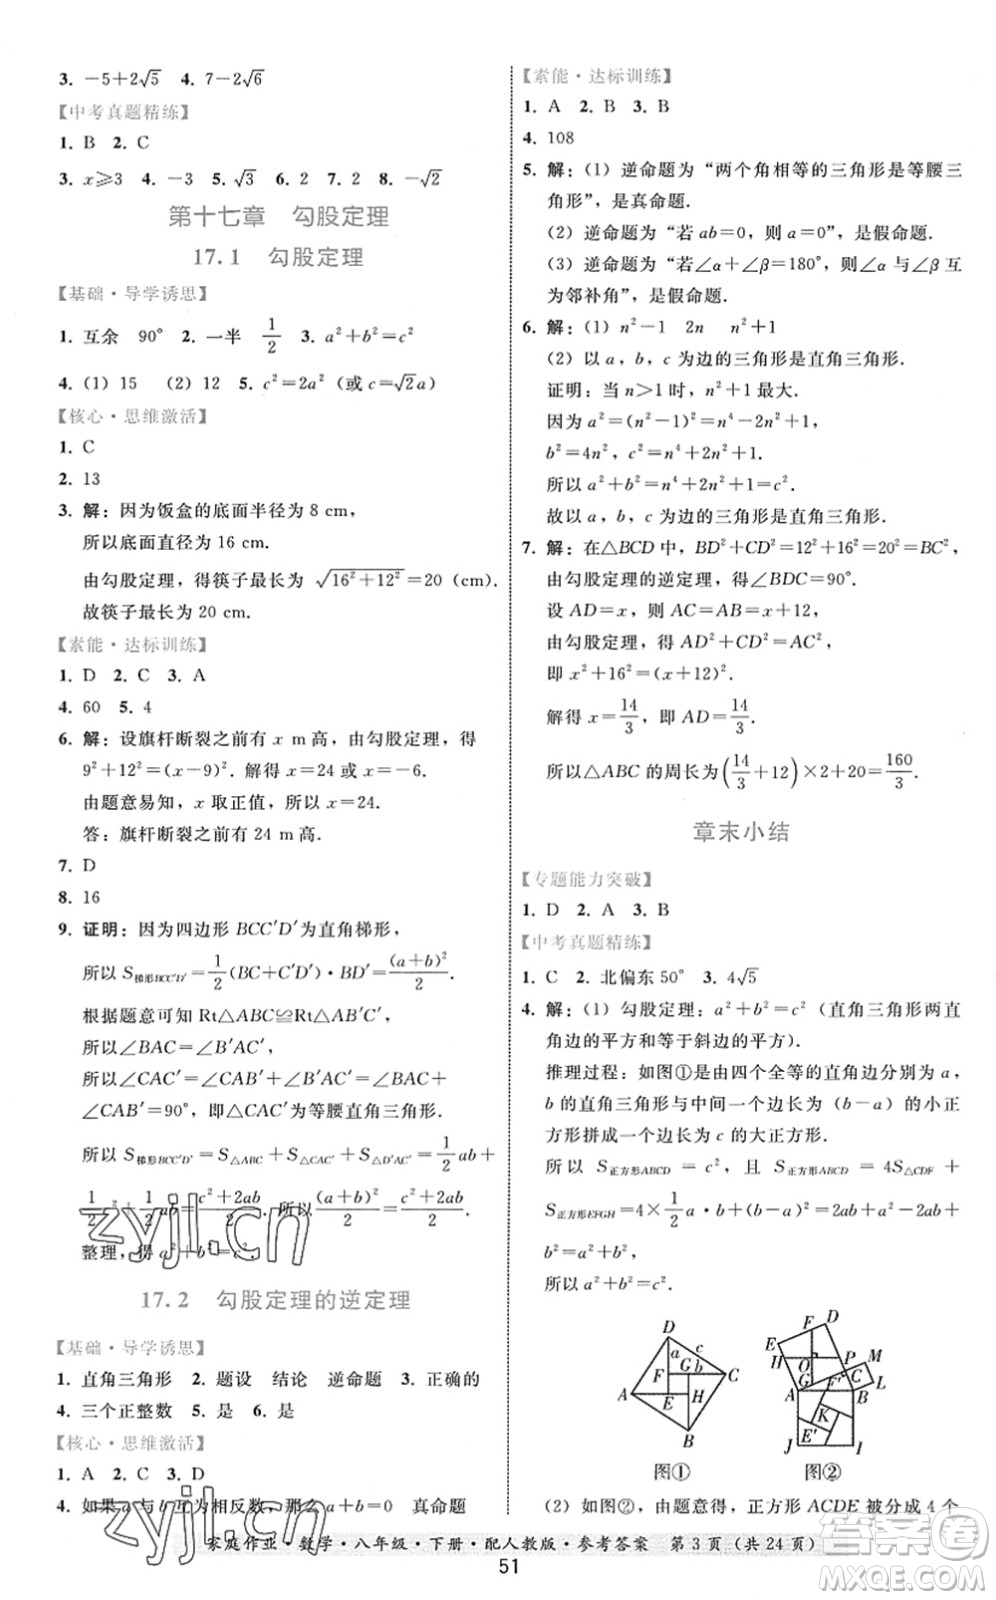 3. －5＋2√5　4. 7－2√6
【中考真题精练】
1. B　2. C
3. x⩾3　4. －3　5. √3　6. 2　7. 2　8. －√2
第十七章　勾股定理
17.1　勾股定理
【基础·导学诱思】
1. 互余　90°　2. 一半　1/2　3. a²＋b²＝c²
4. (1) 15　(2) 12　5. c²＝2a²（或c＝√2a）
【核心·思维激活】
1. C
2. 13
3. 解：因为饭盒的底面半径为8 cm，
所以底面直径为16 cm.
由勾股定理，得筷子最长为 √(16²＋12²)＝20（cm）.
故筷子最长为20 cm.
【素能·达标训练】
1. D　2. C　3. A
4. 60　5. 4
6. 解：设旗杆断裂之前有 x m高，由勾股定理，得
9²＋12²＝(x－9)². 解得x＝24或x＝－6.
由题意易知，x 取正值，所以x＝24.
答：旗杆断裂之前有24 m高.
7. D
8. 16
9. 证明：因为四边形 BCC′D′为直角梯形，
所以S梯形BCC′D′＝1/2(BC＋C′D′)·BD′＝(a＋b)²/2.
根据题意可知 Rt△ABC≌Rt△AB′C′，
所以∠BAC＝∠B′AC′，
所以∠CAC′＝∠CAB′＋∠B′AC′＝∠BAC＋
∠CAB′＝90°，即△CAC′为等腰直角三角形.
所以S梯形BCC′D′＝S△ABC＋S△CAC′＋S△D′AC′＝1/2ab＋
1/2c²＋1/2ab＝(c²＋2ab)/2. 所以(a＋b)²/2＝(c²＋2ab)/2.
整理，得a²＋b²＝c².
17.2　勾股定理的逆定理
【基础·导学诱思】
1. 直角三角形　2. 题设　结论　逆命题　3. 正确的
4. 三个正整数　5. 是　6. 是
【核心·思维激活】
1. A　2. C　3. D
4. 如果a与b互为相反数，那么a＋b＝0　真命题
【素能·达标训练】
1. A　2. B　3. B
4. 108
5. 解：(1) 逆命题为“两个角相等的三角形是等腰三
角形”，是真命题.
(2) 逆命题为“若ab＝0，则a＝0”，是假命题.
(3) 逆命题为“若∠α＋∠β＝180°，则∠α与∠β互
为邻补角”，是假命题.
6. 解：(1) n²－1　2n　n²＋1
(2) 以a，b，c为边的三角形是直角三角形.
证明：当n＞1时，n²＋1最大.
因为a²＝(n²－1)²＝n⁴－2n²＋1，
b²＝4n²，c²＝n⁴＋2n²＋1.
所以a²＋b²＝n⁴＋2n²＋1＝c².
故以a，b，c为边的三角形是直角三角形.
7. 解：在△BCD中，BD²＋CD²＝12²＋16²＝20²＝BC²，
由勾股定理的逆定理，得∠BDC＝90°.
设AD＝x，则AC＝AB＝x＋12，
由勾股定理，得AD²＋CD²＝AC²，
即x²＋16²＝(x＋12)².
解得x＝14/3，即AD＝14/3.
所以△ABC的周长为(14/3＋12)×2＋20＝160/3.
章末小结
【专题能力突破】
1. D　2. A　3. B
【中考真题精练】
1. C　2. 北偏东50°　3. 4√5
4. 解：(1) 勾股定理：a²＋b²＝c²（直角三角形两直
角边的平方和等于斜边的平方）.
推理过程：如图①是由四个全等的直角边分别为a，
b的直角三角形与中间一个边长为(b－a)的小正
方形拼成一个边长为c的大正方形.
所以S正方形ABCD＝c²，且S正方形ABCD＝4S△CDF＋
S正方形EFGH＝4×1/2a·b＋(b－a)²＝2ab＋a²－2ab＋
b²＝a²＋b².
所以a²＋b²＝c².
D
a
c
G
b
C
F
A
E
H
B
图①
F
D
E
H
O
P
M
G
F′
C
L
A
B
K
E′
J
I
图②
(2) 如图②，由题意得，正方形ACDE被分成4个
家庭作业·数学·八年级·下册·配人教版·参考答案　第3页（共24页）
51
zyjl.cn
zyjl.cn
作业精灵
MXQE.COM